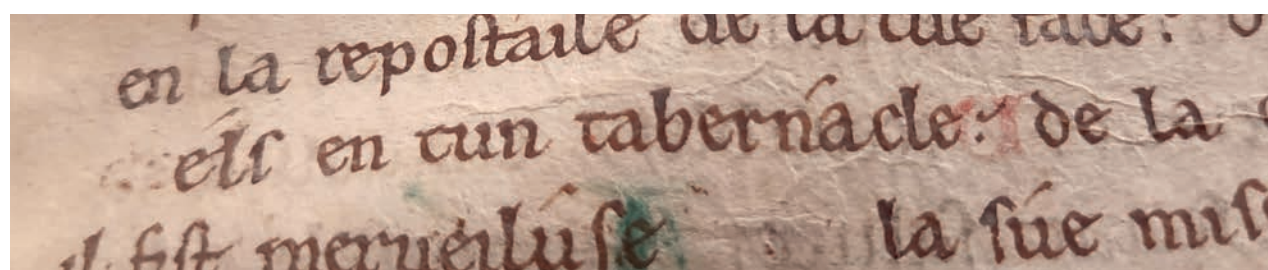 en la repostaile de la tue face.
els en tun tabernacle. de la
il fist merueiluse la sue mis